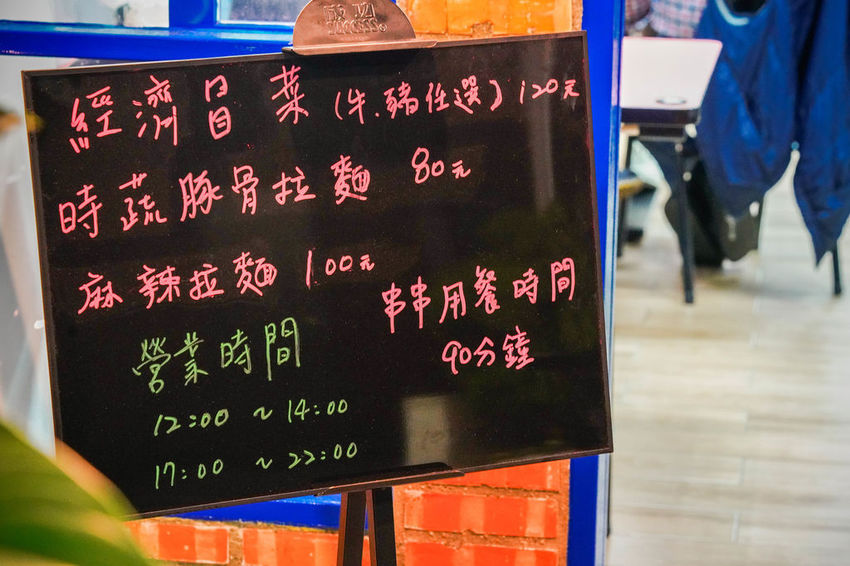 經濟冒菜(牛.豬任選) 120元
時蔬豚骨拉麵 80元
麻辣拉麵 100元
串串用餐時間
90分鐘
營業時間
12:00 ~ 14:00
17:00 ~ 22:00